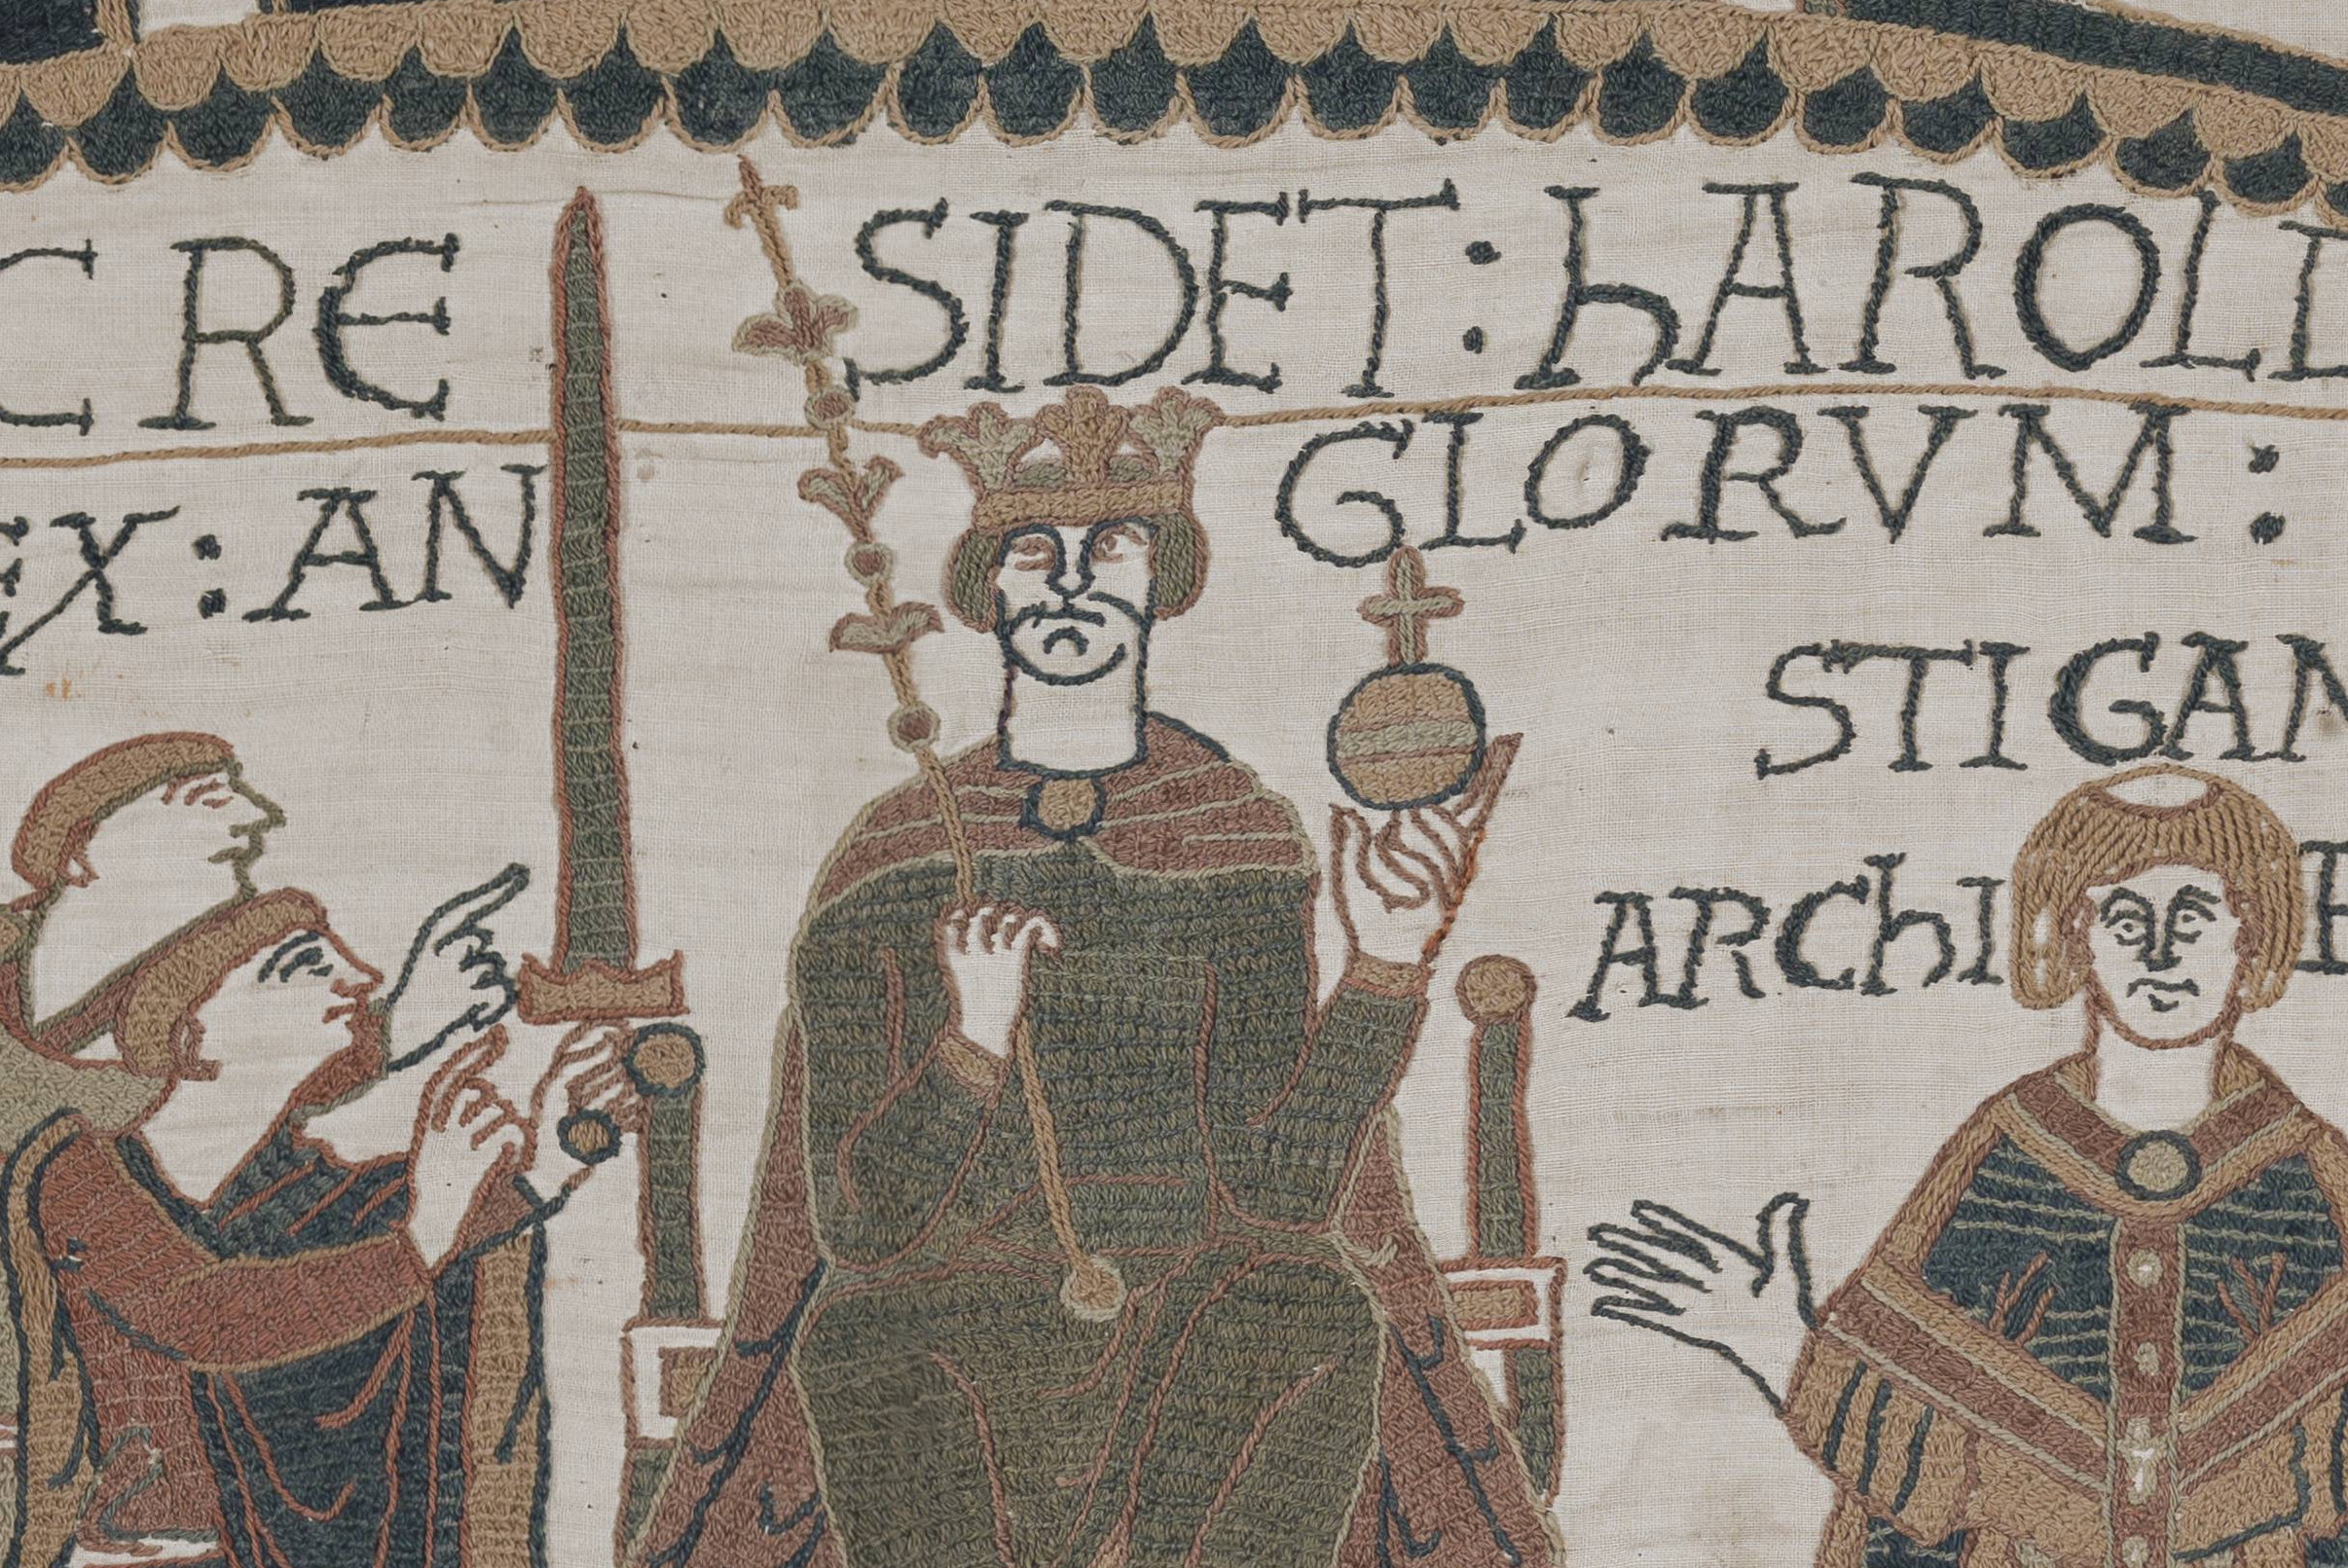 C RESIDET : hAROLD
EX : ANGLORVM :
STIGAN
ARChI E